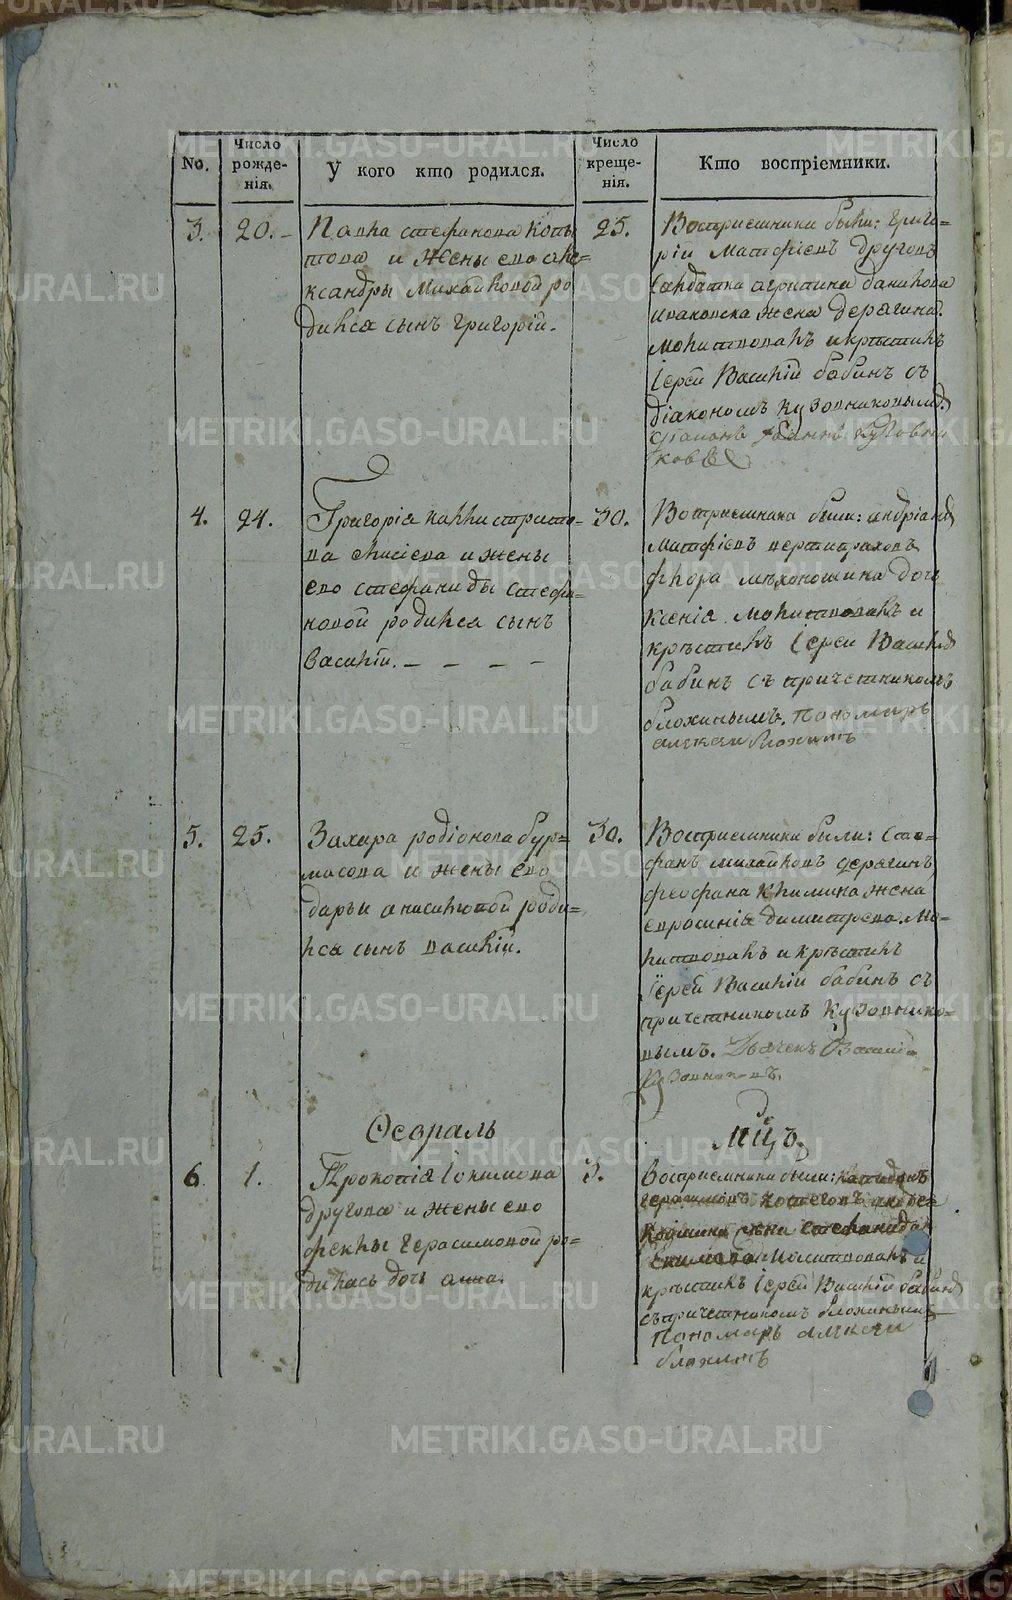 No.
Число рожде-
нія.
У кого кто родился.
Число
креще-
нія.
Кто воспріемники.
3.
20.
Павла стефанова Копы
това и жены ево але=
ксандры Михайловой ро
дился сынъ григорій.
25.
Восприемники были: григо=
рій Матфіевъ друговъ
Солдатка агрипина данилова
жена дерягина.
молитвовалъ и крѣстилъ
Іерей Василій бабинъ съ
діакономъ Кузовниковымъ.
діаконъ Іоаннъ Кузовни
ковъ
4.
24.
Григорія каллистрато-
ва и жены
ево стефаниды стефа-
новой родился сынъ
василій. – – – –
30.
Восприемника были: андріанъ
Матфіевъ
флора дочь
Ксенія. молитвовалъ и
крѣстилъ Іерей Василій
бабинъ съ причетникомъ
блохинымъ. пономарь
алексей блохинъ
5.
25.
Захара родіонова бур=
масова и жены ево
дарьи родил-
ся сынъ василій.
30.
Восприемники были: сте=
фанъ михайловъ дерягинъ
феофана Климина жена
евросинія димитрева. мо-
литвовалъ и крѣстилъ
Іерей Василій бабинъ съ
причетникомъ Кузовнико-
вымъ. Дьячекъ Василій
Кузовниковъ.
Февраль
мцъ
6
1.
Прокопія Іокимова
другова и жены ево
феклы герасимовой ро-
дилась дочь анна.
3.
восприемники были:
герасимовъ
стефанида
молитвовалъ и
крѣстилъ Іерей Василій бабинъ
съ причетникомъ блохинымъ
пономарь алексей
блохинъ
METRIKI.GASO-URAL.RU